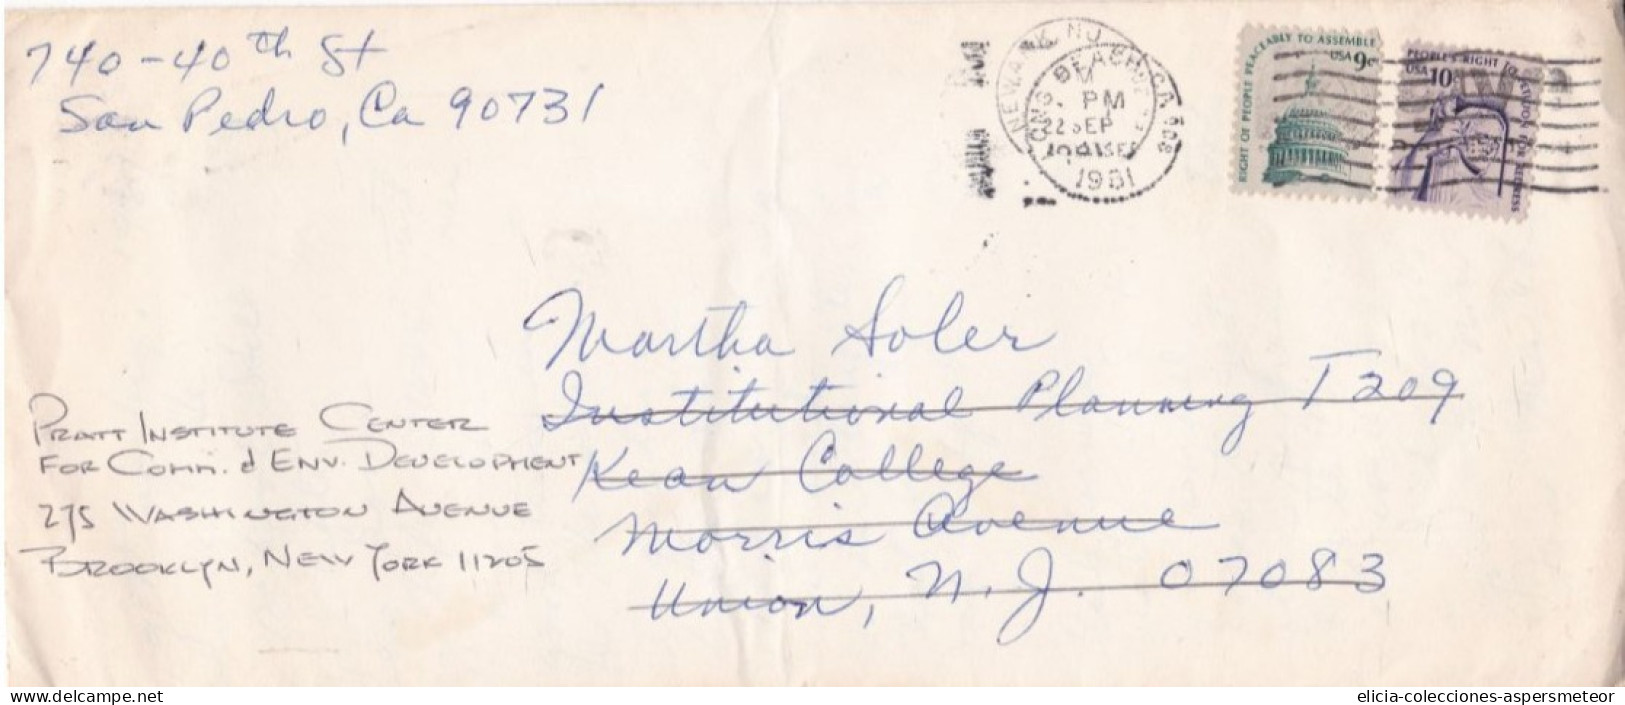 740-40th St
San Pedro, Ca 90731
NEWARK, NJ
LONG BEACH, CA 908
PM
22 SEP
1981
RIGHT OF PEOPLE PEACEABLY TO ASSEMBLE
USA 9c
PEOPLE'S RIGHT TO PETITION FOR REDRESS
USA 10c
Martha Soler
Institutional Planning T209
Kean College
Morris Avenue
Union, N.J. 07083
PRATT INSTITUTE CENTER
FOR COMM. & ENV. DEVELOPMENT
275 WASHINGTON AVENUE
BROOKLYN, NEW YORK 11205
www.delcampe.net
elicia-colecciones-aspersmeteor